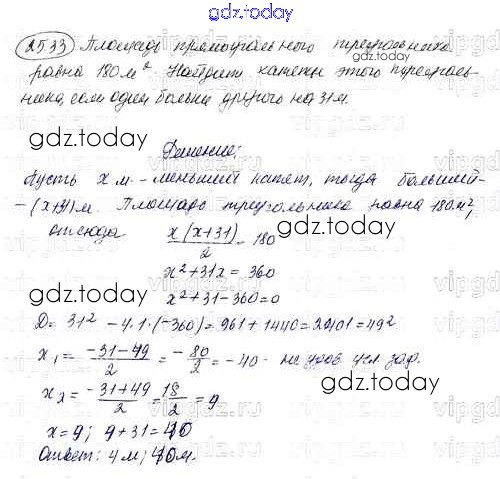 gdz.today
25.33 Площадь прямоугольного треугольника
равна 180 м². Найдите катеты этого треуголь-
ника, если один больше другого на 31 м.
gdz.today
gdz.today
Решение:
Пусть x м. - меньший катет, тогда больший-
-(x+31) м. Площадь треугольника равна 180 м²,
отсюда x(x+31)/2 = 180
gdz.today
x²+31x = 360
gdz.today
x²+31-360=0
D = 31² -4·1·(-360) = 961 + 1440 = 2401 = 49²
x₁ = (-31-49)/2 = -80/2 = -40 - не удов. усл. зад.
x₂ = (-31+49)/2 = 18/2 = 9
gdz.today
x=9; 9+31=40
Ответ: 4 м; 40 м.
gdz.today